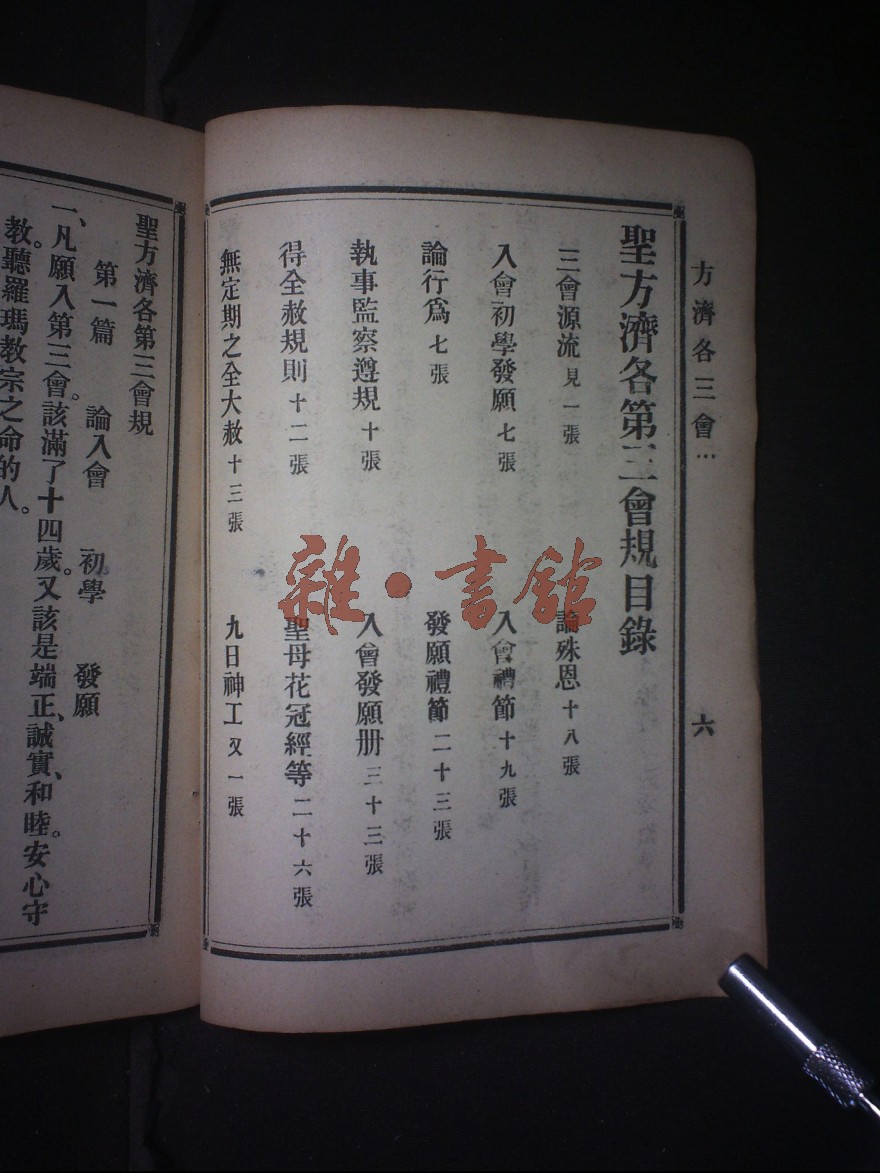 方濟各三會…
六
聖方濟各第三會規目錄
三會源流 見一張
論殊恩 十八張
入會初學發願 七張
入會禮節 十九張
論行爲 七張
發願禮節 二十三張
執事監察遵規 十張
入會發願册 三十三張
得全赦規則 十二張
聖母花冠經等 二十六張
無定期之全大赦 十三張
九日神工 又一張
雜·書館
聖方濟各第三會規
第一篇 論入會 初學 發願
一、凡願入第三會。該滿了十四歲。又該是端正、誠實、和睦。安心守
教。聽羅瑪教宗之命的人。